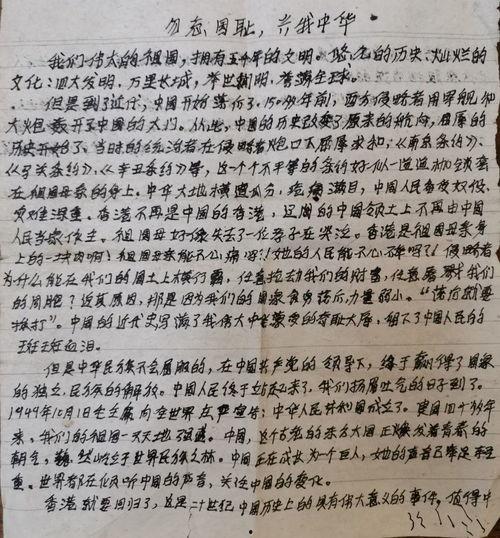 勿忘国耻,兴我中华
我们伟大的祖国,拥有五千年的文明。悠久的历史、灿烂的
文化:四大发明、万里长城,举世闻明,誉满全球。
但是到了近代,中国开始落伍了。150多年前,西方侵略者用军舰和
大炮轰开了中国的大门。从此,中国的历史改变了原来的航向,屈辱的
历史开始了。当时的统治者在侵略者炮口下屈辱求和;《南京条约》、
《马关条约》、《辛丑条约》等,这一个个不平等的条约好似一道道枷锁套
在祖国母亲的身上。中华大地横遭瓜分,疮痍满目,中国人民备受奴役、
灾难深重。香港不再是中国的香港,辽阔的中国领土上不再由中国
人民当家作主。祖国母好像失去了一位孩子在哭泣。香港是祖国母亲身
上的一块肉啊!祖国母亲能不心痛吗!她的人民能不心碎吗?!侵略者
为什么能在我们的国土上横行霸,任意掠去我们的财富,任意屠杀我们
的同胞?追其原因,那是因为我们的国家贫穷落后,力量弱小。“落后就要
挨打”。中国的近代史写满了我伟大中华蒙受的奇耻大辱,留下了中国人民的
班班血泪。
但是中华民族不会屈服的,在中国共产党的领导下,终于赢得了国家
的独立、民族的解放。中国人民终于站起来了,我们扬眉吐气的日子到了。
1949年10月1日毛主席向全世界庄严宣告:中华人民共和国成立了。建国四十多年
来,我们的祖国一天天地强盛。中国,这个古老的东方大国正焕发着青春的
朝气,巍然屹立于世界民族之林。中国正在成长为一个巨人,她的声音已举足轻
重。世界都在倾听中国的声音,关注中国的变化。
香港就要回归了,这是二十世纪中国历史上的具有伟大意义的事件,值得中